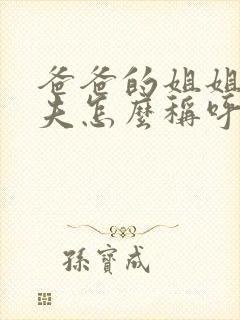 爸爸的姐姐
夫怎麼稱呼
孫寶成